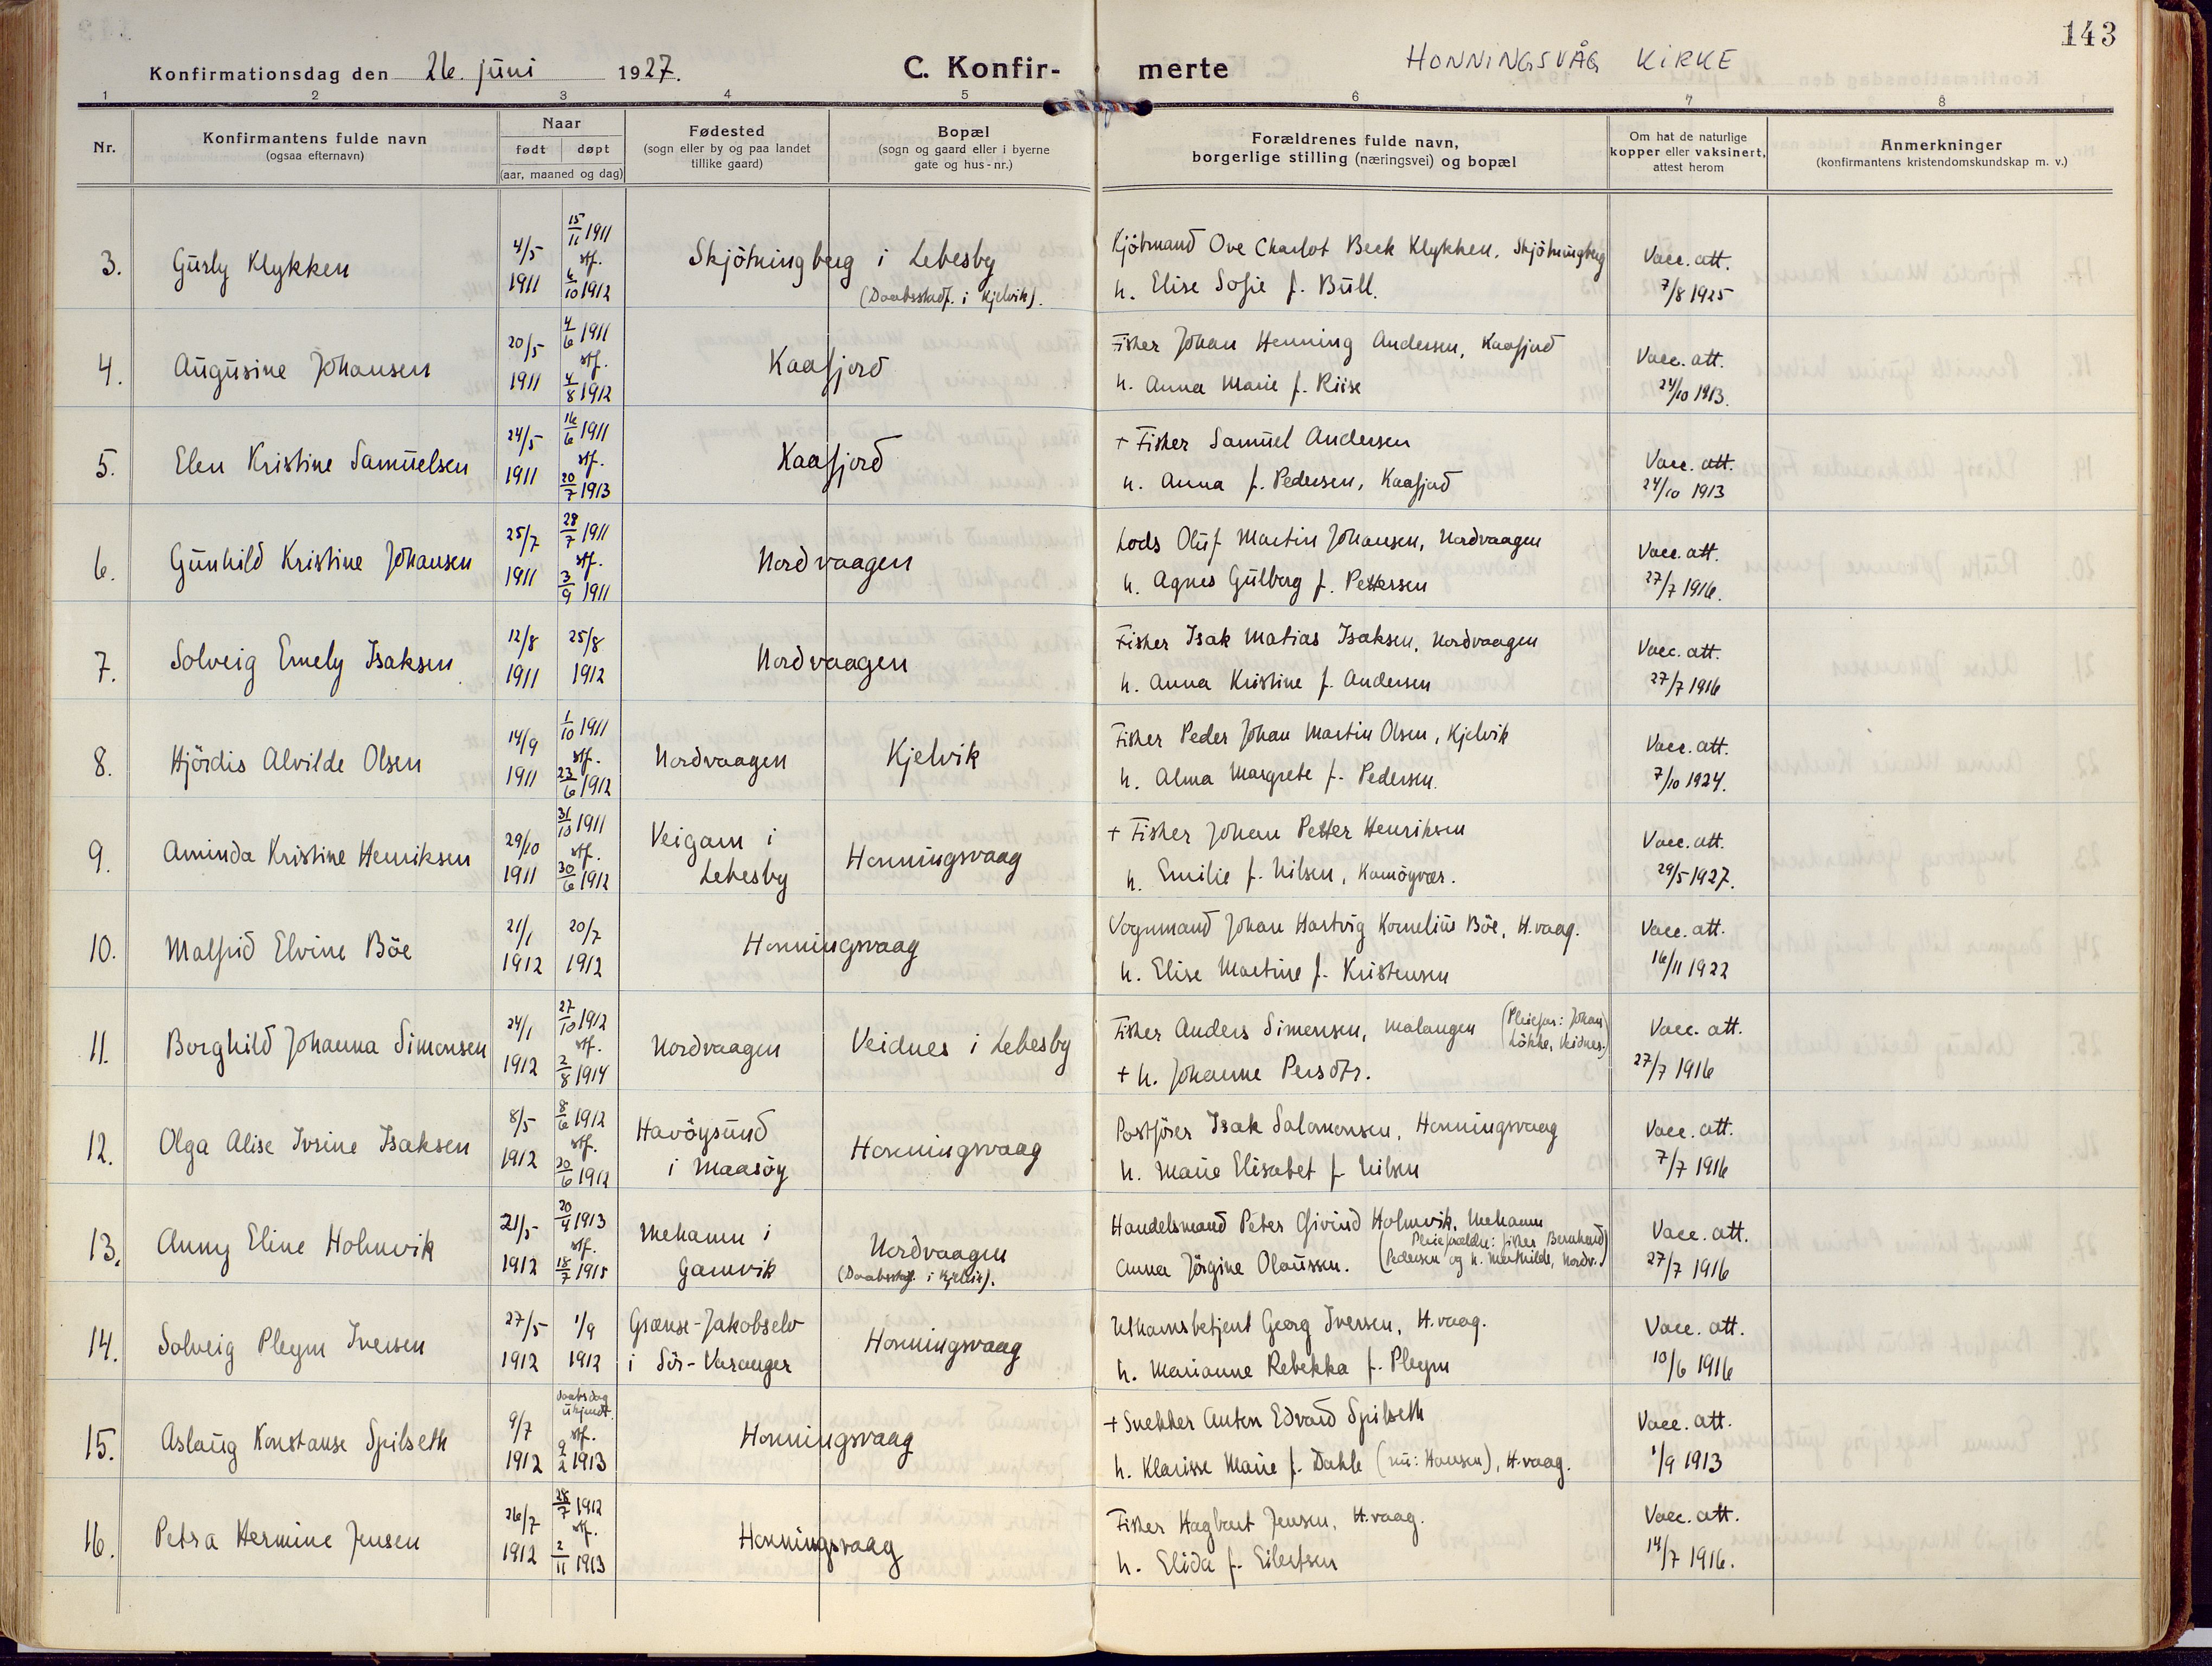 143
Konfirmationsdag den 26. juni 1927.
C. Konfir- merte
HONNINGSVÅG KIRKE
1 2 3 4 5 6 7 8
Nr.
Konfirmantens fulde navn
(ogsaa efternavn)
Naar
født døpt
(aar, maaned og dag)
Fødested
(sogn eller by og paa landet
tillike gaard)
Bopæl
(sogn og gaard eller i byerne
gate og hus-nr.)
Forældrenes fulde navn,
borgerlige stilling (næringsvei) og bopæl
Om hat de naturlige
kopper eller vaksinert,
attest herom
Anmerkninger
(konfirmantens kristendomskundskap m. v.)
3. Gurly Klykken
4/5 1911
15/11 1911
stf.
6/10 1912
Skjötningberg i Lebesby
(Daabsstadf. i Kjelvik).
Kjöbmand Ove Charlot Beck Klykken, Skjötningberg
h. Elise Sofie f. Bull.
Vacc. att.
7/8 1925
4. Augusine Johansen
20/5 1911
4/6 1911
stf.
4/8 1912
Kaafjord
Fisker Johan Henning Andersen, Kaafjord
h. Anna Marie f. Riise
Vacc. att.
24/10 1913.
5. Elen Kristine Samuelsen
24/5 1911
16/6 1911
stf.
20/7 1913
Kaafjord
+ Fisker Samuel Andersen
h. Anna f. Pedersen, Kaafjord
Vacc. att.
24/10 1913
6. Gunhild Kristine Johansen
25/7 1911
28/7 1911
stf.
3/9 1911
Nordvaagen
Lods Oluf Martin Johansen, Nordvaagen
h. Agnes Gulborg f. Pettersen
Vacc. att.
27/7 1916.
7. Solveig Emely Isaksen
12/8 1911
25/8 1912
Nordvaagen
Fisker Isak Matias Isaksen, Nordvaagen
h. Anna Kristine f. Andersen
Vacc. att.
27/7 1916
8. Hjördis Alvilde Olsen
14/9 1911
1/10 1911
stf.
23/6 1912
Nordvaagen
Kjelvik
Fisker Peder Johan Martin Olsen, Kjelvik
h. Alma Margrete f. Pedersen.
Vacc. att.
7/10 1924.
9. Aminda Kristine Henriksen
29/10 1911
31/10 1911
stf.
30/6 1912
Veigam i
Lebesby
Honningsvaag
+ Fisker Johan Petter Henriksen
h. Emilie f. Nilsen, Kamöyvær.
Vacc. att.
29/5 1927.
10. Malfrid Elvine Böe
21/1 1912
20/7 1912
Honningsvaag
Vognmand Johan Hartvig Kornelius Böe, H.vaag.
h. Elise Martine f. Kristensen
Vacc. att.
16/11 1922
11. Borghild Johanna Simonsen
24/1 1912
27/10 1912
stf.
2/8 1914
Nordvaagen
Veidnes i Lebesby
Fisker Anders Simensen, Malangen (Pleiefar: Johan
Lökke, Veidnes.)
+ h. Johanne Persdtr.
Vacc. att.
27/7 1916
12. Olga Alise Ivrine Isaksen
8/5 1912
8/6 1912
stf.
20/6 1912
Havöysund
i Maasöy
Honningsvaag
Postförer Isak Salamonsen, Honningsvaag
h. Marie Elisabet f. Nilsen
Vacc. att.
7/7 1916
13. Anny Eline Holmvik
21/5 1912
20/4 1913
stf.
18/7 1915
Mehamn i
Gamvik
Nordvaagen
(Daabsstadf. i Kjelvik).
Handelsmand Peter Eivind Holmvik, Mehamn
(Pleieforældre: fisker Bernhard
Anna Jörgine Olaussen. Pedersen og h. Methilde, Nordv.)
Vacc. att.
27/7 1916
14. Solveig Pleym Iversen
27/5 1912
1/9 1912
Grænse-Jakobselv
i Sör-Varanger
Honningsvaag
Uthavnsbetjent Georg Iversen, H.vaag.
h. Marianne Rebekka f. Pleym
Vacc. att.
10/6 1916
15. Aslaug Konstanse Spilseth
9/7 1912
daabsdag
ukjendt.
stf.
9/2 1913
Honningsvaag
+ Snekker Anton Edvard Spilseth
h. Klarisse Marie f. Dahle (nu: Hansen), H.vaag.
Vacc. att.
1/9 1913
16. Petra Hermine Jensen
26/7 1912
28/7 1912
stf.
2/11 1913
Honningsvaag
Fisker Hagbart Jensen, H.vaag.
h. Elida f. Eilertsen
Vacc. att.
14/7 1916.